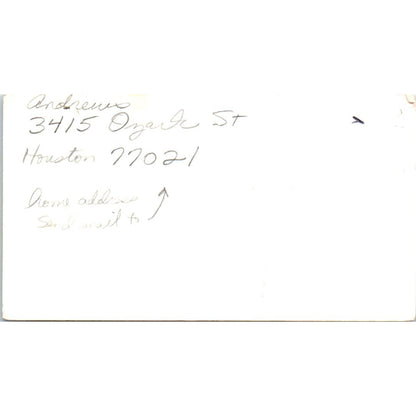 Andrews
3415 Ozark St
Houston 77021
home address
Send mail to